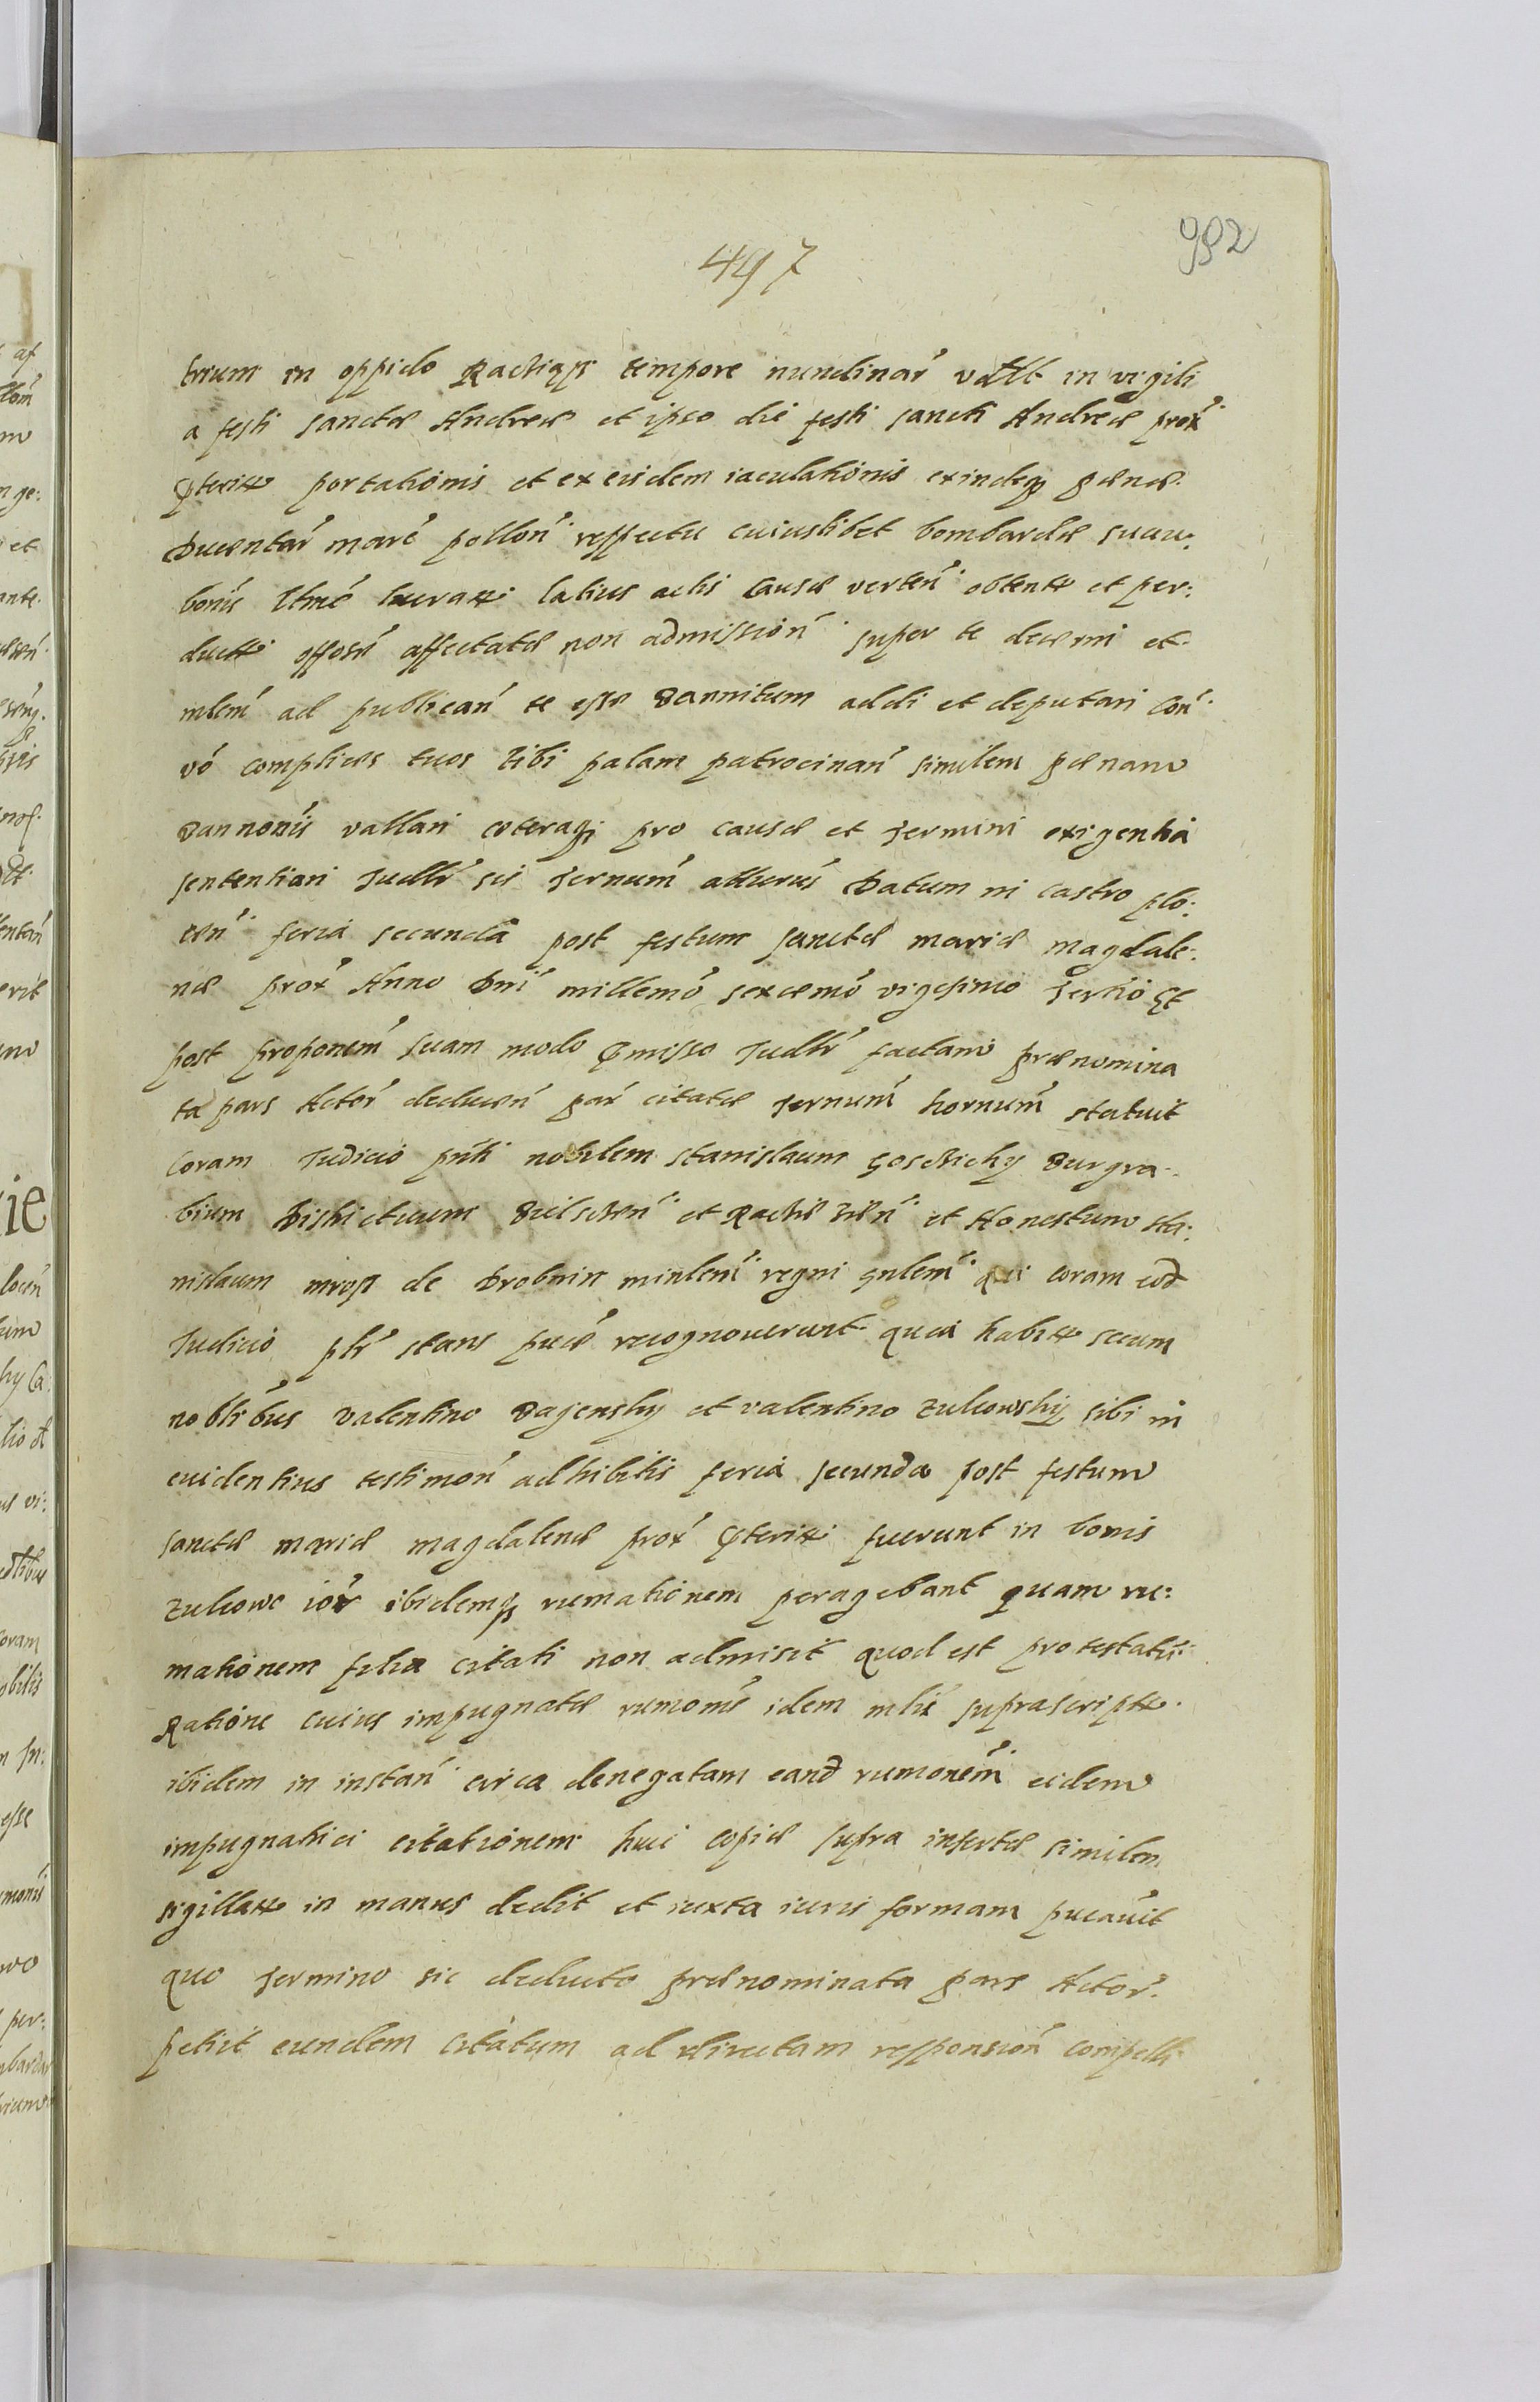 992
497
trium in oppido Raciąsz tempore nundinar̃ vdtt in vigili
a festi sanctæ Andreæ et ipso die festi sancti Andreæ prox̃
p̃terittæ portationis et ex eisdem iaculationis exindeq̨ pænæ
Ducentar̃ marc̃ pollon̂ respectu cuiuslibet bombardæ
bonis ltmẽ latius actis causæ verten̂ obtentæ et per:
affectatæ non admission̂ super te decerni et
mlem̂ ad publican̂ te esse Bannitum addi et deputari Con̂
vo complices tuos tibi palam patrocinan̂ similem pænam
Bannonis vallari cæteraq̨ pro causæ et Termini exigentia
sententiari Judlr̃ sis Ternum̂ atturus̃ Datum in castro plo:
cen̂ feria secunda post festum sanctæ mariæ magdale:
næ prox̃ Anno Dni millemo sexcemo vigesimo Tertio Et
post proponem̂ suam modo p̃misso Judlr̃ factam prænomina
ta pars Actor̃ deducen̂ par̃ citatæ Ternum̂ hornum̂ statuit
Coram Judicio pn̂ti nobilem Stanislaum Goschichy Burgra:
bium Districtuum Bielscen̂ et Raciæzen̂ et Honestum Sta:
nislaum mroz de Drobnin minlem̂ regni gnlem̂ qui coram eod
Judicio plr̃ stans pucæ recognouerunt quia habittæ secum
noblibus Valentino Bagenshy et valentino zukowshy sibi in
euidentius testimon̂ adhibitis feria secunda post festum
sanctæ mariæ magdalenæ prox̃ p̃teritti fuerunt in bonis
zukowo ibidemq̨ rumationem peragebant quam ru:
mationem filia citati non admisit quod est protestatũ
Ratione cuius impugnatæ rumonis idem mlis suprascriptæ
ibidem in instan̂ circa denegatam eand rumonem̂ eidem
impugnatici citationem huic copiæ supra insertæ similem
sigillattæ in manus dedit et iuxta iuris formam pucauit
quo Termino sic deducto prænominata pars Actor̃
petiit eundem Citatum ad directam responsion̂ compelli